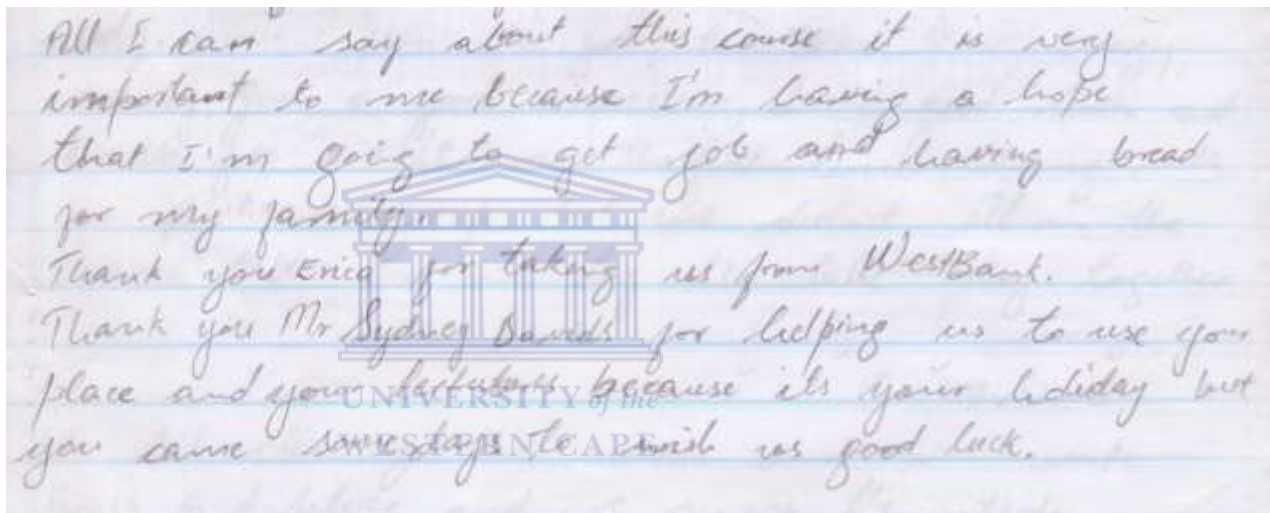 All I can say about this course it is very
important to me because I'm having a hope
that I'm going to get job and having bread
for my family.
Thank you Erica for taking us from WestBank.
Thank you Mr Sydney Davids for helping us to use your
place and your because its your holiday but
you came some days to wish us good luck.
UNIVERSITY of the
WESTERN CAPE